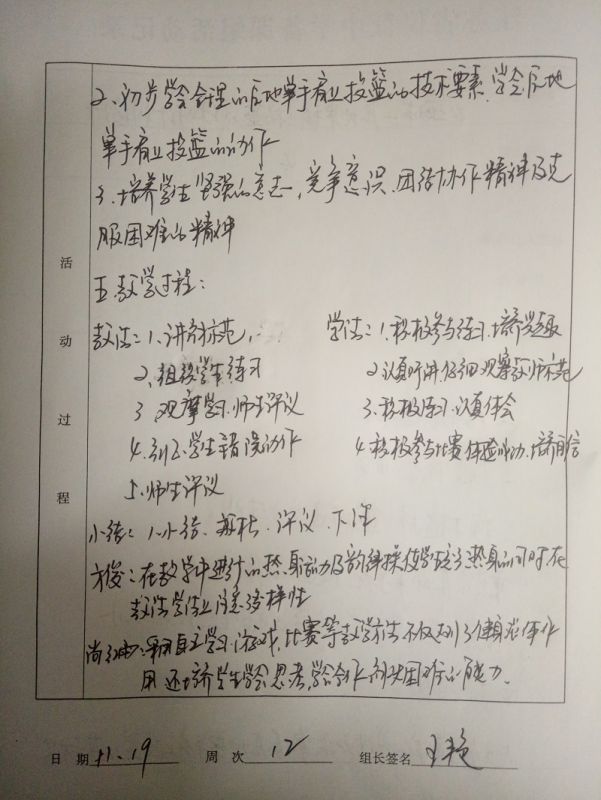 2、初步学会合理的原地单手肩上投篮的技术要素,学会原地
单手肩上投篮的动作
3、培养学生坚强的意志,竞争意识、团结协作精神及克
服困难的精神
活动过程
五、教学过程:
教法:1、讲解示范
学法:1.积极参与练习,培养兴趣
2、组织学生练习
2认真听讲仔细观察教师示范
3 观摩学习,师生评议
3.积极练习,认真体会
4.纠正学生错误动作
4.积极参与比赛体验成功,培养自信
5、师生评议
小结:1、小结、评议、下课
在教学中进行的热身动力及韵律操使学生达到了热身的同时在
教法学法上注意多样性
自主学习、游戏、比赛等教学方法不仅起到了健身
用还培养学生学会思考,学会合作解决困难的能力。
日 期 11.19 周 次 12 组长签名 王艳